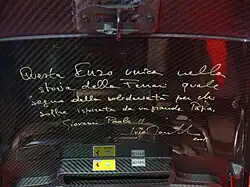 Questa Enzo unica nella
storia della Ferrari quale
segno della solidarietà per chi
soffre ispirata da un grande Papa,
Giovanni Paolo II